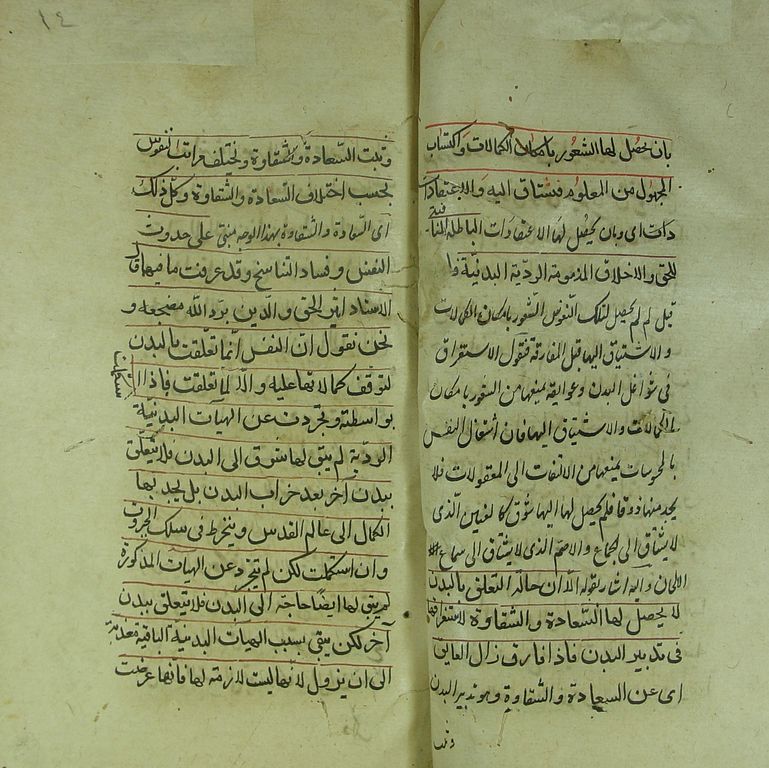 بان يحصل لها الشعور بامكان الكمالات واكتساب
المجهول من المعلوم فتشتاق اليه والاعتقادا
دات اى وبان يحصل لها الاعتقادات الباطلة المنا
فية
للحق والاخلاق المذمومة الردية البدنية فا
قيل لم لم يحصل لتلك النفوس الشعور بامكان الكمالات
والاشتياق اليها قبل المفارقة فنقول الاستغراق
فى شواغل البدن وعوايقه يمنعها من الشعور بامكان
الكمالات والاشتياق اليها فان اشتغال النفس
بالمحسوسات يمنعها من الالتفات الى المعقولات فلا
يجد منها ذوقا فلم يحصل لها اليها شوق كالعنين الذى
لا يشتاق الى الجماع والاصم الذى لا يشتاق الى سماع
الالحان واليه اشار بقوله الا ان حالة التعلق بالبدن
لا يحصل لها السعادة والشقاوة لاستغراقها
فى تدبير البدن فاذا فارق زال العايق
اى عن السعادة والشقاوة وهو تدبير البدن
وثبت
١٢
وثبت السعادة والشقاوة ويختلف مراتب النفوس
بحسب اختلاف السعادة والشقاوة وكل ذلك
اى السعادة والشقاوة بهذا الوجه مبنى على حدوث
النفس وفساد التناسخ وقد عرفت ما فيهما قال
الاستاد اثير الحق والدين برد الله مضجعه و
نحن نقول ان النفس انما تعلقت بالبدن
لتوقف كمالاتها عليه والا لما تعلقت فاذا ا
ستكملت
بواسطته وتجردت عن الهيآت البدنية
الردية لم يبق لها شوق الى البدن فلا يتعلق
ببدن آخر بعد خراب البدن بل يجد بها
الكمال الى عالم القدس وينخرط فى سلك الجبروت
وان استكملت لكن لم تتجرد عن الهيآت المذكورة
لم يبق لها ايضا حاجة الى البدن فلا يتعلق ببدن
آخر لكن يبقى بسبب الهيآت البدنية الباقية معذبة
الى ان يزول لانها ليست لازمة لها فانها عرضت